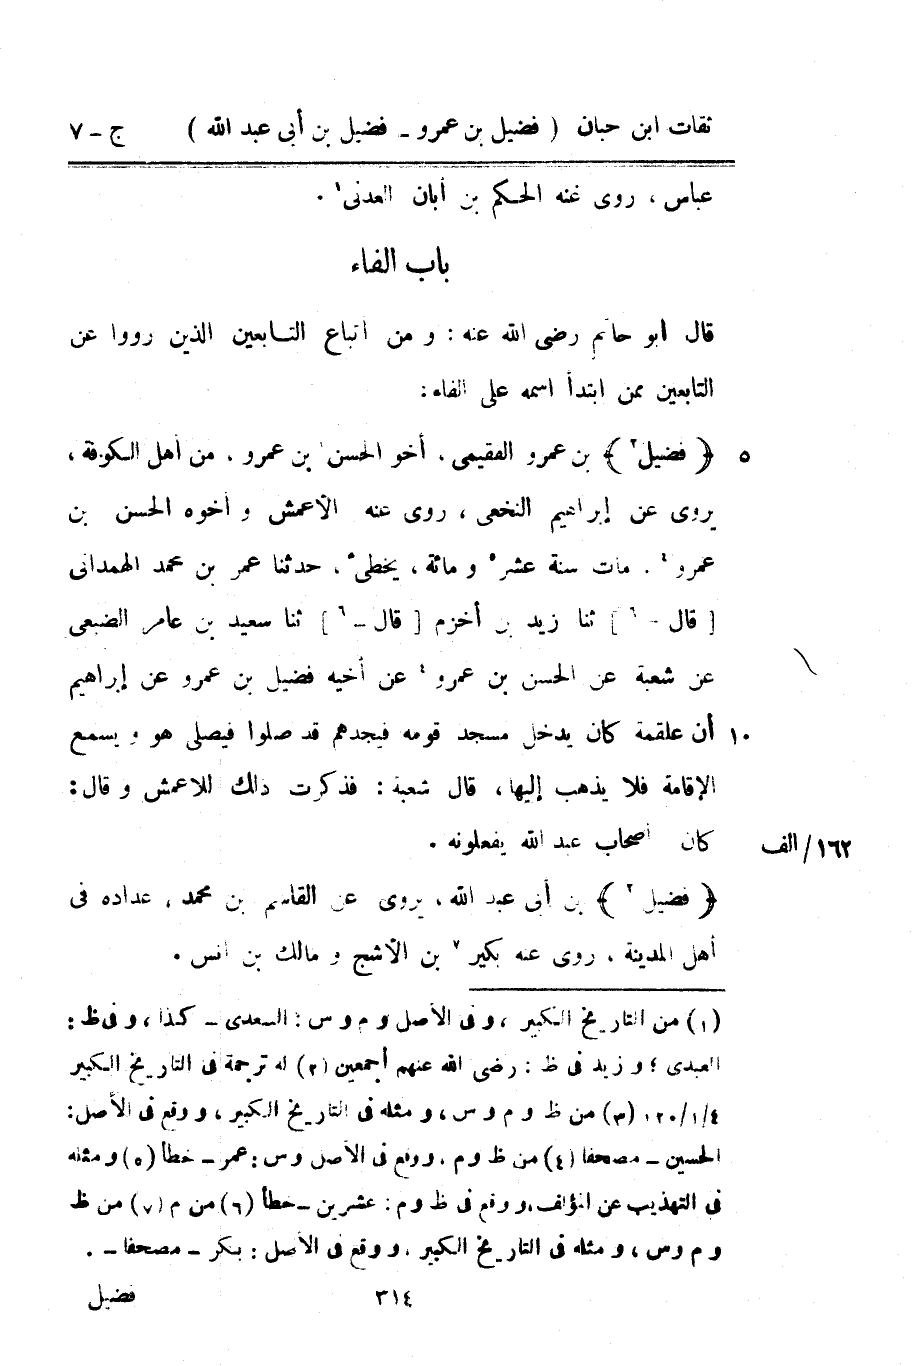 ثقات ابن حبان ( فضيل بن عمرو ـ فضيل بن أبى عبد الله ) ج ـ ٧
عباس ، روى عنه الحكم بن أبان العدنى١ .
باب الفاء
قال أبو حاتم رضى الله عنه : و من اتباع التابعين الذين رووا عن
التابعين ممن ابتدأ اسمه على الفاء :
٥ ﴿ فضيل٢ ﴾ بن عمرو الفقيمى . أخو الحسن٣ بن عمرو . من أهل الكوفة ،
يروى عن إبراهيم النخعى ، روى عنه الأعمش و أخوه الحسن بن
عمرو٤ . مات سنة عشر٥ و مائة ، يخطئ . حدثنا عمر بن محمد الهمدانى
[ قال ـ ٦ ] ثنا زيد بن أخزم [ قال ـ ٦ ] ثنا سعيد بن عامر الضبعى
عن شعبة عن الحسن بن عمرو٤ عن أخيه فضيل بن عمرو عن إبراهيم
١٠ أن علقمة كان يدخل مسجد قومه فيجدهم قد صلوا فيصلى هو و يسمع
الإقامة فلا يذهب إليها ، قال شعبة : فذكرت ذلك للاعمش و قال :
١٦٢/ الف كان أصحاب عبد الله يفعلونه .
﴿ فضيل٢ ﴾ بن أبى عبد الله ، يروى عن القاسم بن محمد ، عداده فى
أهل المدينة ، روى عنه بكير٧ بن الأشج و مالك بن أنس .
(١) من التاريخ الكبير ، و فى الأصل و م و س : السعدى ـ كذا ، و فى ظ :
العبدى ؛ و زيد فى ظ : رضى الله عنهم أجمعين (٢) له ترجمة فى التاريخ الكبير
٤/١/١٢٠ (٣) من ظ و م و س ، و مثله فى التاريخ الكبير ، و وقع فى الأصل :
الحسين ـ مصحفا (٤) من ظ و م . ووقع فى الأصل و س : عمر ـ خطأ (٥) و مثله
فى التهذيب عن المؤلف ، و وقع فى ظ و م : عشرين ـ خطأ (٦) من م (٧) من ظ
و م و س ، و مثله فى التاريخ الكبير . و وقع فى الأصل : بكر ـ مصحفا ـ .
٣١٤ فضيل